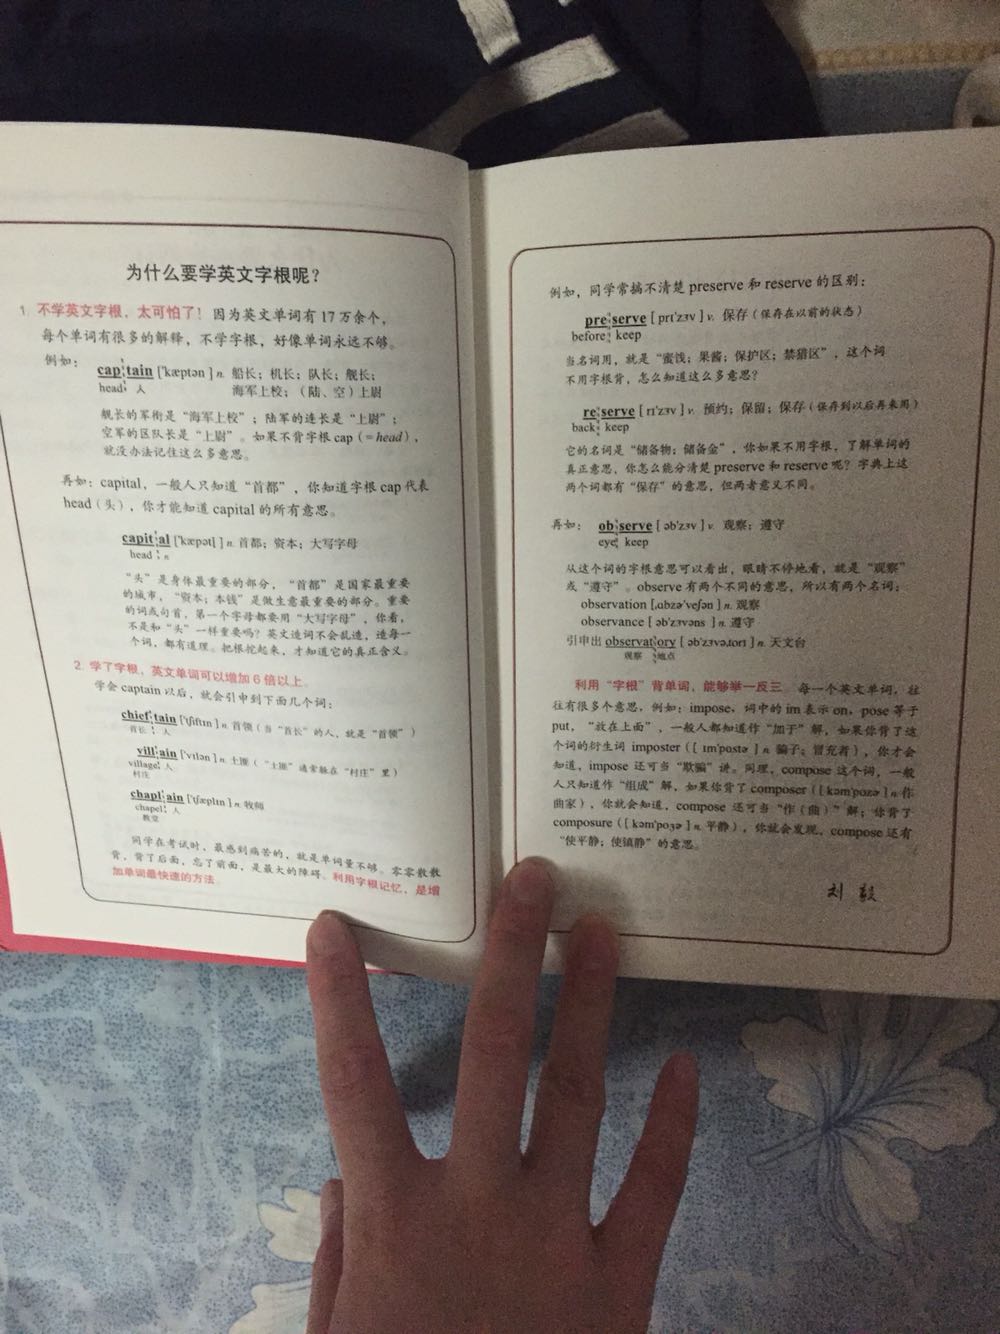 为什么要学英文字根呢？
1. 不学英文字根，太可怕了！ 因为英文单词有 17 万余个，
每个单词有很多的解释，不学字根，好像单词永远不够。
例如：
cap tain ['kæptən] n. 船长；机长；队长；舰长；
head 人 海军上校；（陆、空）上尉
舰长的军衔是“海军上校”；陆军的连长是“上尉”；
空军的区队长是“上尉”。如果不背字根 cap（= head），
就没办法记住这么多意思。
再如：capital，一般人只知道“首都”，你知道字根 cap 代表
head（头），你才能知道 capital 的所有意思。
capit al ['kæpətl] n. 首都；资本；大写字母
head n.
“头”是身体最重要的部分，“首都”是国家最重要
的城市，“资本；本钱”是做生意最重要的部分。重要
的词或句首，第一个字母都要用“大写字母”，你看，
不是和“头”一样重要吗？英文造词不会乱造，造每一
个词，都有道理。把根挖起来，才知道它的真正含义。
2. 学了字根，英文单词可以增加 6 倍以上。
学会 captain 以后，就会引申到下面几个词：
chief tain ['tʃiftɪn] n. 首领（当“首长”的人，就是“首领”）
首长 人
vill ain ['vɪlən] n. 土匪（“土匪”通常躲在“村庄”里）
village 人
村庄
chapl ain ['tʃæplɪn] n. 牧师
chapel 人
教堂
同学在考试时，最感到痛苦的，就是单词量不够。零零散散
背，背了后面，忘了前面，是最大的障碍。利用字根记忆，是增
加单词最快速的方法。
例如，同学常搞不清楚 preserve 和 reserve 的区别：
pre serve [ prɪ'zɜv ] v. 保存（保存在以前的状态）
before keep
当名词用，就是“蜜饯；果酱；保护区；禁猎区”，这个词
不用字根背，怎么知道这么多意思？
re serve [ rɪ'zɜv ] v. 预约；保留；保存（保存到以后再来用）
back keep
它的名词是“储备物；储备金”，你如果不用字根，了解单词的
真正意思，你怎么能分清楚 preserve 和 reserve 呢？字典上这
两个词都有“保存”的意思，但两者意义不同。
再如： ob serve [ əb'zɜv ] v. 观察；遵守
eye keep
从这个词的字根意思可以看出，眼睛不停地看，就是“观察”
或“遵守”。observe 有两个不同的意思，所以有两个名词：
observation [ˌɑbzə'veʃən ] n. 观察
observance [ əb'zɜvəns ] n. 遵守
引申出 observat ory [ əb'zɜvəˌtorɪ ] n. 天文台
观察 地点
利用“字根”背单词，能够举一反三。每一个英文单词，往
往有很多个意思，例如：impose，词中的 im 表示 on，pose 等于
put，“放在上面”，一般人都知道作“加于”解，如果你背了这
个词的衍生词 imposter（[ ɪm'pɑstə ] n. 骗子；冒充者），你才会
知道，impose 还可当“欺骗”讲。同理，compose 这个词，一般
人只知道作“组成”解，如果你背了 composer（[ kəm'pozə ] n. 作
曲家），你就会知道，compose 还可当“作（曲）”解；你背了
composure（[ kəm'poʒə ] n. 平静），你就会发现，compose 还有
“使平静；使镇静”的意思。
刘 毅